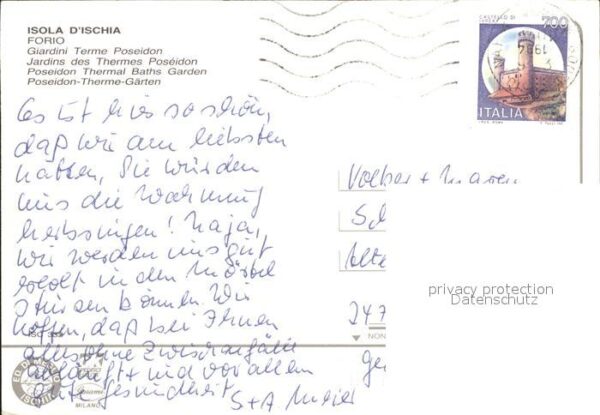 ISOLA D'ISCHIA
FORIO
Giardini Terme Poseidon
Jardins des Thermes Poséidon
Poseidon Thermal Baths Garden
Poseidon-Therme-Gärten
Es ist hier so schön,
daß wir am liebsten
hätten, Sie würden
uns die Wohnung
herbringen! Naja,
wir werden uns gut
in den
stürzen können. Wir
hoffen, daß bei Ihnen
alles ohne Zwischenfälle
abläuft + und vor allem
gute Gesundheit
S+A
Volker + Maren
247
NON
CASTELLO DI
700
ITALIA
1984
MILANO
privacy protection
Datenschutz